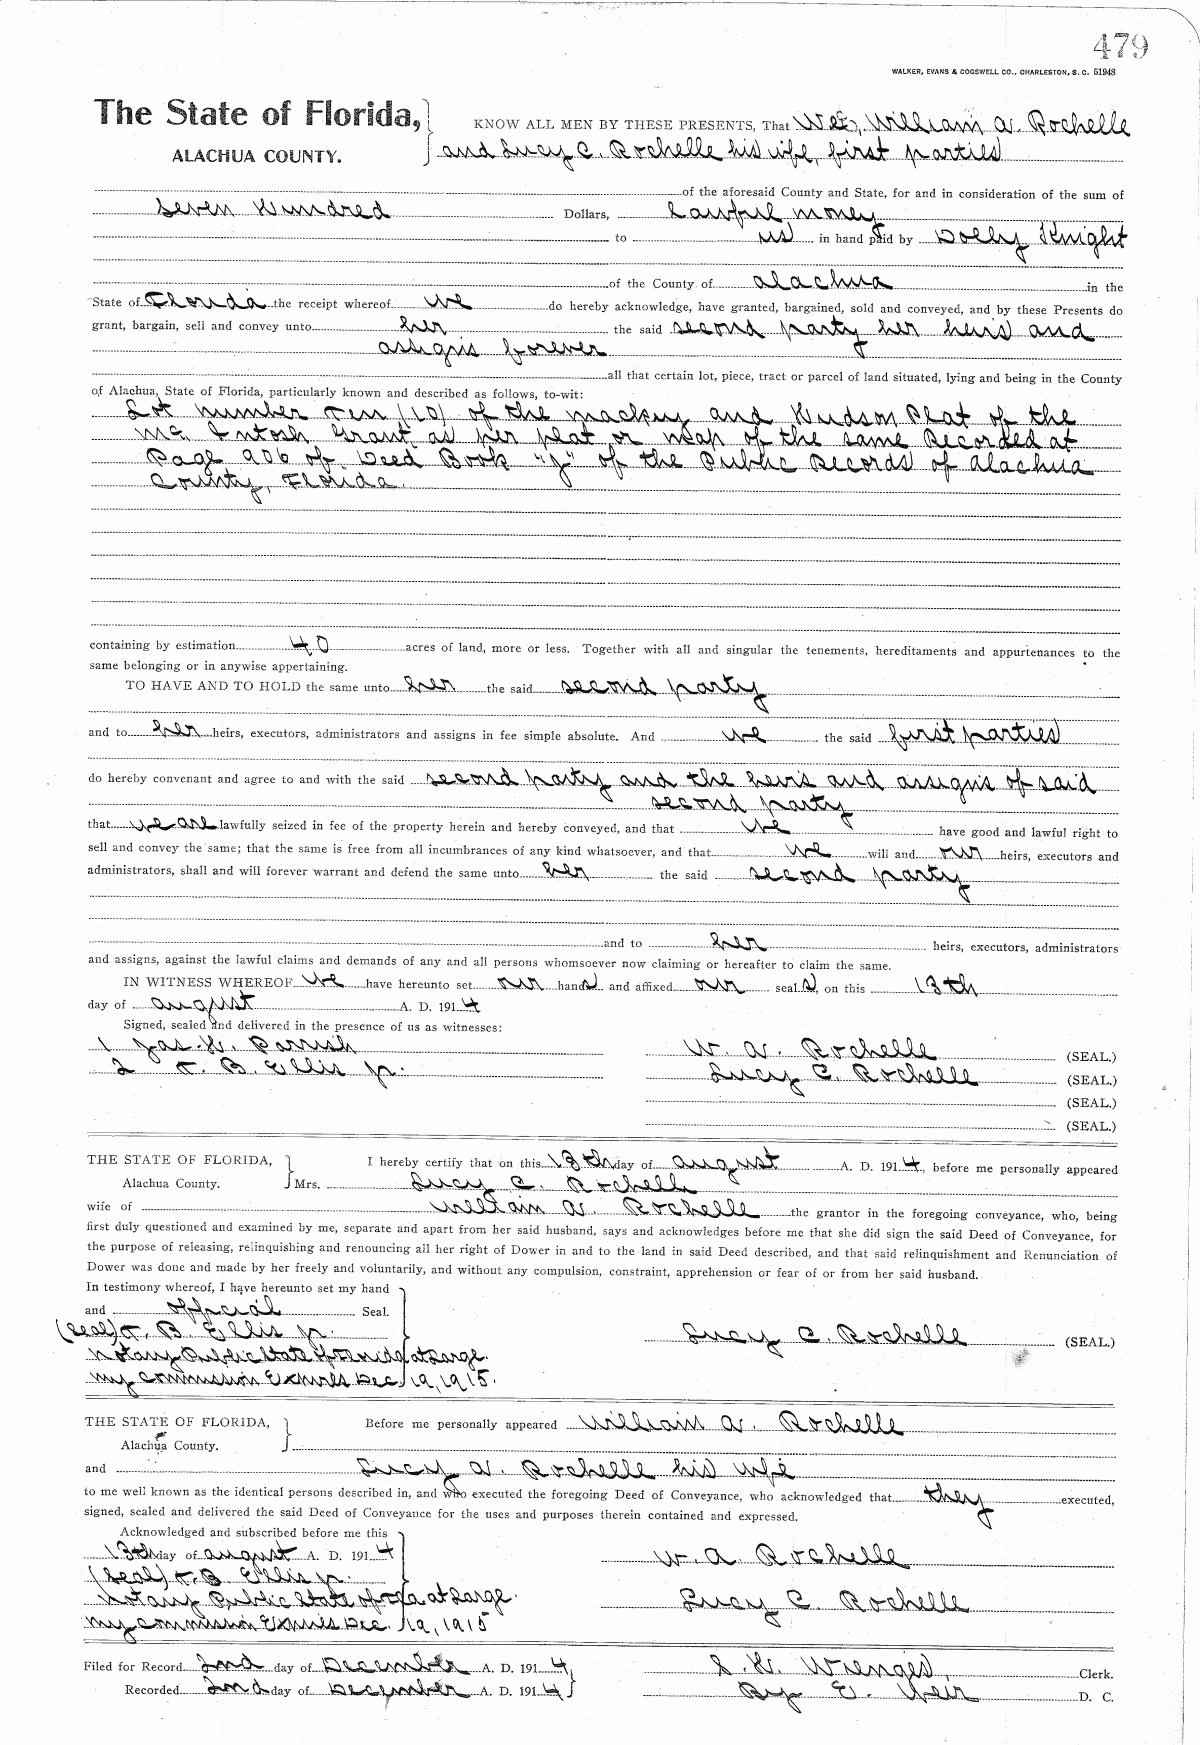 479
WALKER, EVANS & COGSWELL CO., CHARLESTON, S. C. 51948
The State of Florida,
ALACHUA COUNTY.
KNOW ALL MEN BY THESE PRESENTS, That We, William A. Rochelle
and Lucy C. Rochelle his wife, first parties
of the aforesaid County and State, for and in consideration of the sum of
Seven Hundred Dollars, Lawful money
to us in hand paid by Dolly Knight
of the County of Alachua in the
State of Florida the receipt whereof we do hereby acknowledge, have granted, bargained, sold and conveyed, and by these Presents do
grant, bargain, sell and convey unto her the said second party her heirs and
assigns forever
all that certain lot, piece, tract or parcel of land situated, lying and being in the County
of Alachua, State of Florida, particularly known and described as follows, to-wit:
Lot number Ten (10) of the Mackey and Hudson Plat of the
Mc. Intosh Grant, as per plat or map of the same Recorded at
Page 906 of Deed Book "J" of the Public Records of Alachua
County, Florida.
containing by estimation 40 acres of land, more or less. Together with all and singular the tenements, hereditaments and appurtenances to the
same belonging or in anywise appertaining.
TO HAVE AND TO HOLD the same unto her the said second party
and to her heirs, executors, administrators and assigns in fee simple absolute. And we the said first parties
do hereby convenant and agree to and with the said second party and the heirs and assigns of said
second party
that we are lawfully seized in fee of the property herein and hereby conveyed, and that we have good and lawful right to
sell and convey the same; that the same is free from all incumbrances of any kind whatsoever, and that we will and our heirs, executors and
administrators, shall and will forever warrant and defend the same unto her the said second party
and to her heirs, executors, administrators
and assigns, against the lawful claims and demands of any and all persons whomsoever now claiming or hereafter to claim the same.
IN WITNESS WHEREOF we have hereunto set our hands and affixed our seals, on this 13th
day of August A. D. 1914
Signed, sealed and delivered in the presence of us as witnesses:
1 Jas. H. Parrish W. A. Rochelle (SEAL.)
2 T. B. Ellis Jr. Lucy C. Rochelle (SEAL.)
(SEAL.)
(SEAL.)
THE STATE OF FLORIDA, I hereby certify that on this 13th day of August A. D. 1914, before me personally appeared
Alachua County. Mrs. Lucy C. Rochelle
wife of William A. Rochelle the grantor in the foregoing conveyance, who, being
first duly questioned and examined by me, separate and apart from her said husband, says and acknowledges before me that she did sign the said Deed of Conveyance, for
the purpose of releasing, relinquishing and renouncing all her right of Dower in and to the land in said Deed described, and that said relinquishment and Renunciation of
Dower was done and made by her freely and voluntarily, and without any compulsion, constraint, apprehension or fear of or from her said husband.
In testimony whereof, I have hereunto set my hand
and official Seal.
(Seal) T. B. Ellis Jr. Lucy C. Rochelle (SEAL.)
Notary Public State of Florida at Large.
My Commission Expires Dec. 19, 1915.
THE STATE OF FLORIDA, Before me personally appeared William A. Rochelle
Alachua County.
and Lucy A. Rochelle his wife
to me well known as the identical persons described in, and who executed the foregoing Deed of Conveyance, who acknowledged that they executed,
signed, sealed and delivered the said Deed of Conveyance for the uses and purposes therein contained and expressed.
Acknowledged and subscribed before me this
13th day of August A. D. 1914 W. A. Rochelle
(Seal) T. B. Ellis Jr.
Notary Public State of Fla at Large. Lucy C. Rochelle
My Commission Expires Dec. 19, 1915
Filed for Record 2nd day of December A. D. 1914, S. H. Wienges, Clerk.
Recorded 2nd day of December A. D. 1914 By E. Weir D. C.